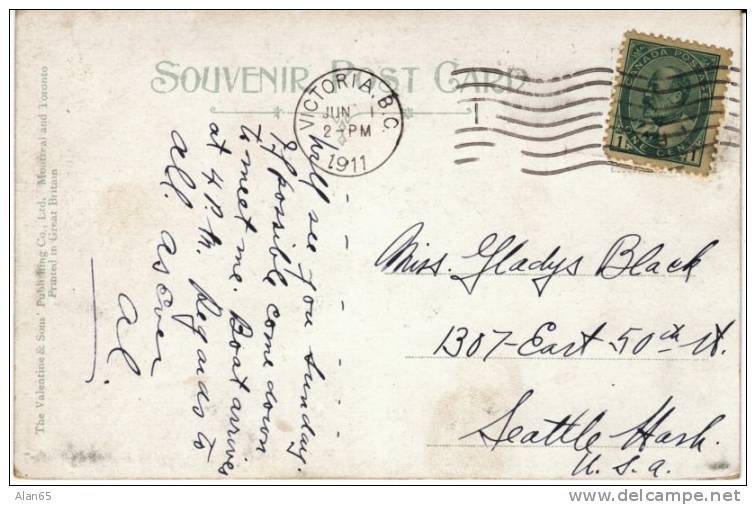 SOUVENIR POST CARD
VICTORIA, B.C.
JUN 1
2-PM
1911
1
CANADA POSTAGE
ONE CENT
1 1
Will see you Sunday.
If possible come down
to meet me. Boat arrives
at 4 P.M. Regards to
all. as Ever
Al.
Miss. Gladys Black
1307-East-50th St.
Seattle Wash.
U.S.A.
The Valentine & Sons' Publishing Co., Ltd., Montreal and Toronto
Printed in Great Britain
Alan65
http://www.delcampe.net